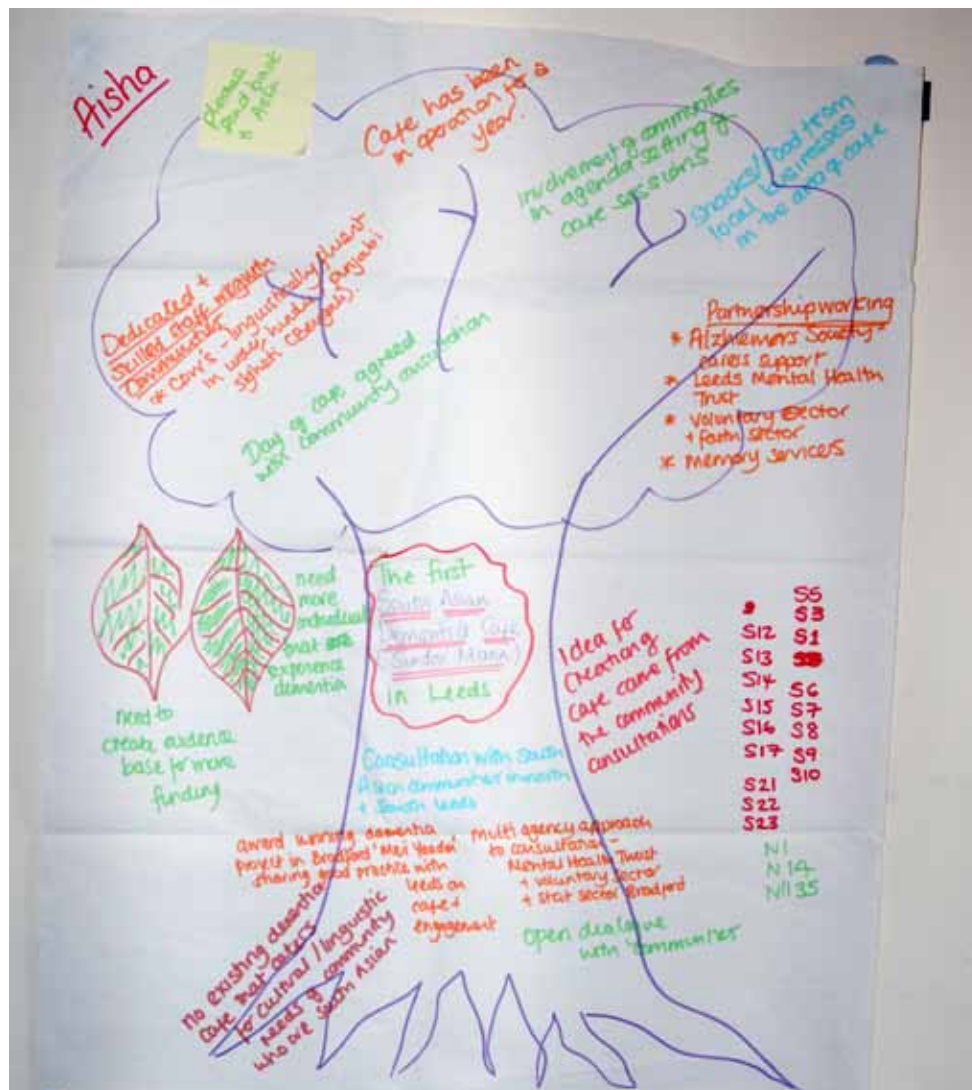 Aisha
Cafe has been
in operation for a
year.
involvement of communities
in agenda setting of
cafe sessions
snacks/food from
local businesses
in the area of cafe
Dedicated +
skilled staff
communities
linguistically fluent
in urdu, hindi, punjabi
Day of cafe agreed
community consultation
Partnership working
* Alzhiemers Society -
carers support
* Leeds Mental Health
Trust
* Voluntary Sector
+ faith sector
* Memory services
need
more
individuals
that
experience
dementia
need to
create evidence
base for more
funding
The first
South Asian
Dementia Cafe
(Sundar Mann)
in Leeds
Idea for
creating
cafe came from
the community
consultations
S5
S3
S12 S1
S13
S14 S6
S15 S7
S16 S8
S17 S9
S10
S21
S22
S23
N1
N14
Consultation with South
Asian communities in north
+ South Leeds
award winning dementia
project in Bradford 'Meri Yaadain'
sharing good practice with
leeds on
cafe +
engagement
multi agency approach
to consultation -
Mental Health Trust
+ voluntary sector
+ stat sector Bradford
open dialogue
with 'communities'
No existing dementia
cafe that caters
for cultural/linguistic
needs of community
who are South Asian